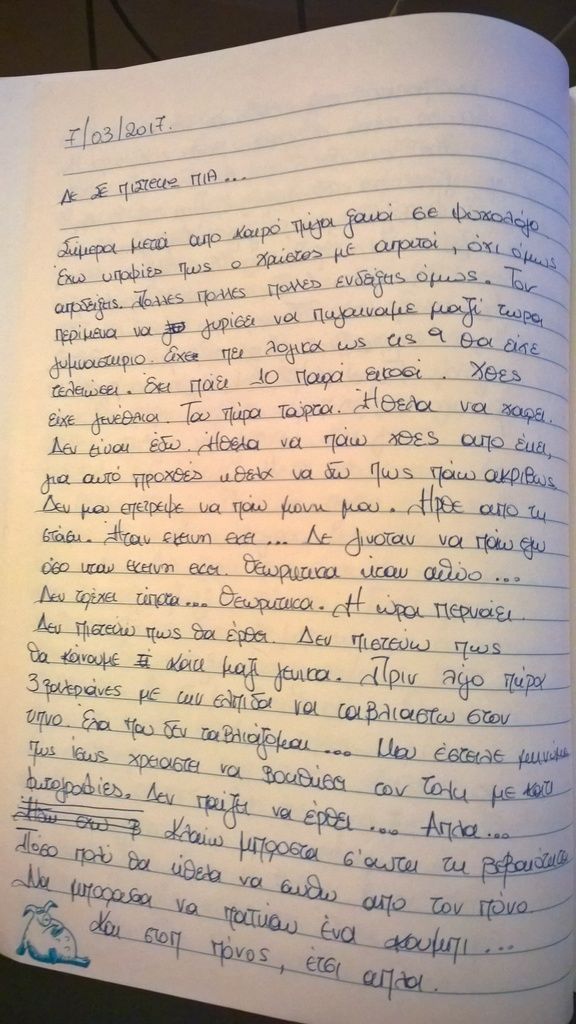 7/03/2017.
ΔΕ ΣΕ ΠΙΣΤΕΥΩ ΠΙΑ...
Σήμερα μετά απο καιρό πήγα ξανά σε ψυχολόγο
Έχω υποψίες πως ο Χρήστος με απατάει, όχι όμως
αποδείξεις. Πολλες πολλες πολλες ενδείξης όμως. Τον
περίμενα να γυρίσει να πηγαιναμε μαζί τωρα
γυμναστηριο. Είχε πει λογικα ως τις 9 θα είχε
τελειώσει. Έχει πάει 10 παρά εικοσι. Χθες
είχε γενέθλια. Του πήρα τούρτα. Ήθελα να χαρεί.
Δεν είναι εδώ. Ήθελα να πάω χθες απο εκει,
για αυτό προχθές ήθελα να δω πως πάω ακριβώς
Δεν μου επέτρεψε να πάω μονη μου. Ήρθε απο τη
στάση. Ήταν εκεινη εκει... Δε γινοταν να πάω εγω
όσο ηταν εκεινη εκει. Θεωρητικα ήταν αθώο...
Δεν τρέχει τίποτα... Θεωρητικα. Η ώρα περνάει.
Δεν πιστεύω πως θα έρθει. Δεν πιστεύω πως
θα κάνουμε κάτι μαζί γενικα. Πριν λίγο πήρα
3 βαλεριάνες με την ελπίδα να ταβλιαστω στον
υπνο. Έλα που δεν ταβλιάζομαι... Μου έστειλε μηνυμα
πως ίσως χρειαστει να βοηθήσει τον Τολη με κατι
φωτογραφίες. Δεν παίζει να έρθει.... Απλα...
Κλαίω μπροστα σ'αυτη τη βεβαιότητα
Πόσο πολύ θα ήθελα να σωθω απο τον πόνο.
Να μπορουσα να πατησω ένα κουμπι...
Και στοπ πόνος, έτσι απλα.